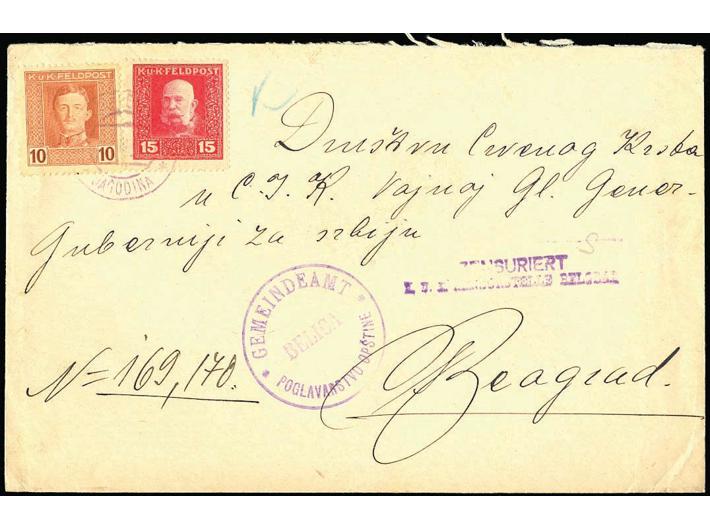 K.u.K. FELDPOST K.u.K. FELDPOST
10 10 15 15
JAGODINA
Društvu Crvenog Krsta
u C. I. K. Vojnoj Gl. Gener-
Guberniji za srbiju
ZENSURIERT
K. U. K. ZENSURSTELLE BELGRAD
GEMEINDEAMT
BELICA
POGLAVARSTVO OPŠTINE
No= 169,170.
Beograd.